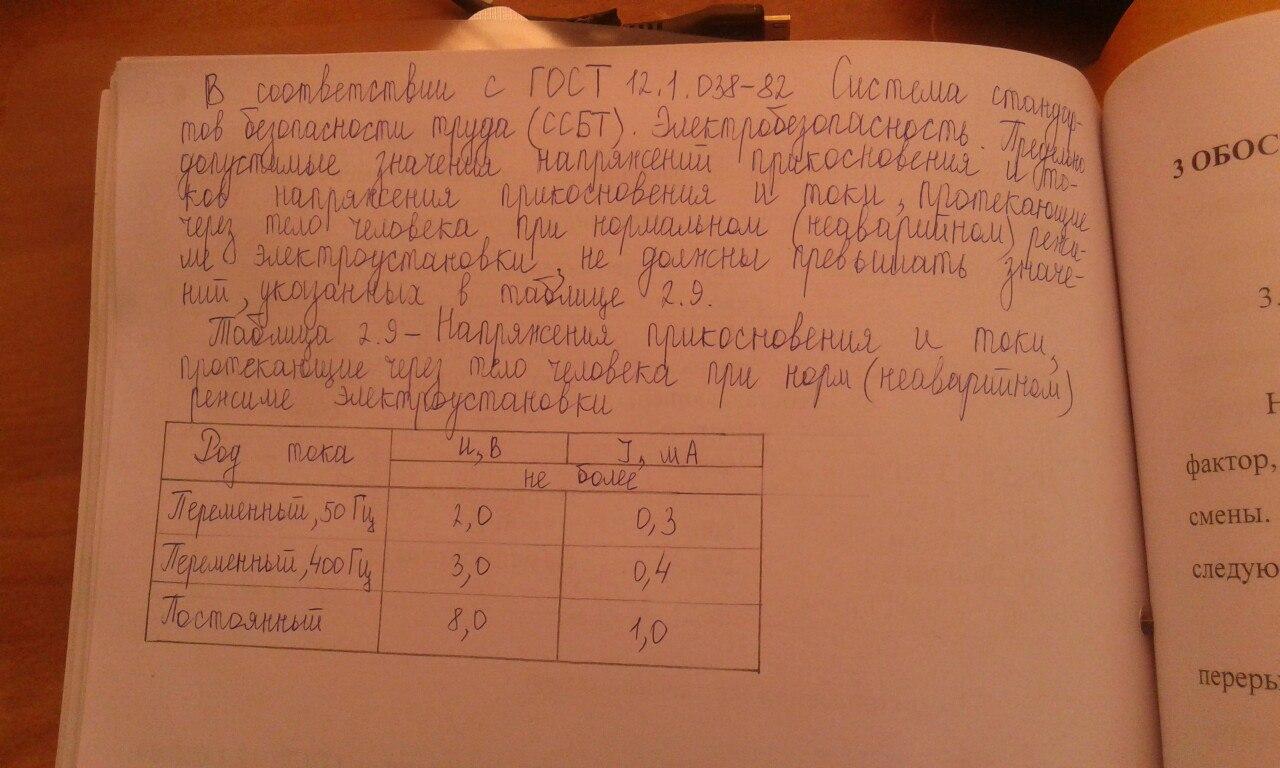 В соответствии с ГОСТ 12.1.038-82 Система стандар-
тов безопасности труда (ССБТ). Электробезопасность. Предельно
допустимые значения напряжений прикосновения и то-
ков напряжения прикосновения и токи, протекающие
через тело человека при нормальном (неаварийном) режи-
ме электроустановки, не должны превышать значе-
ний, указанных в таблице 2.9.
Таблица 2.9 - Напряжения прикосновения и токи,
протекающие через тело человека при норм (неаварийном)
режиме электроустановки
Род тока U, В I, мА
не более
Переменный, 50 Гц 2,0 0,3
Переменный, 400 Гц 3,0 0,4
Постоянный 8,0 1,0
3 ОБОС
3.
Н
фактор,
смены.
следую
переры